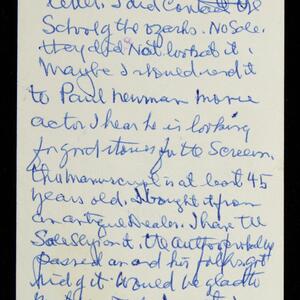 letter. I did contact the
School of the ozarks. No Sale.
they did Not look at it.
Maybe I should send it
to Paul Newman movie
actor I hear he is looking
for good stories for the Screen.
the manuscript is at least 45
years old. I bought it from
an antique Dealer. I have the
Sale slip on it. the author probably
passed on and his folks got
rid of it. Would be glad to